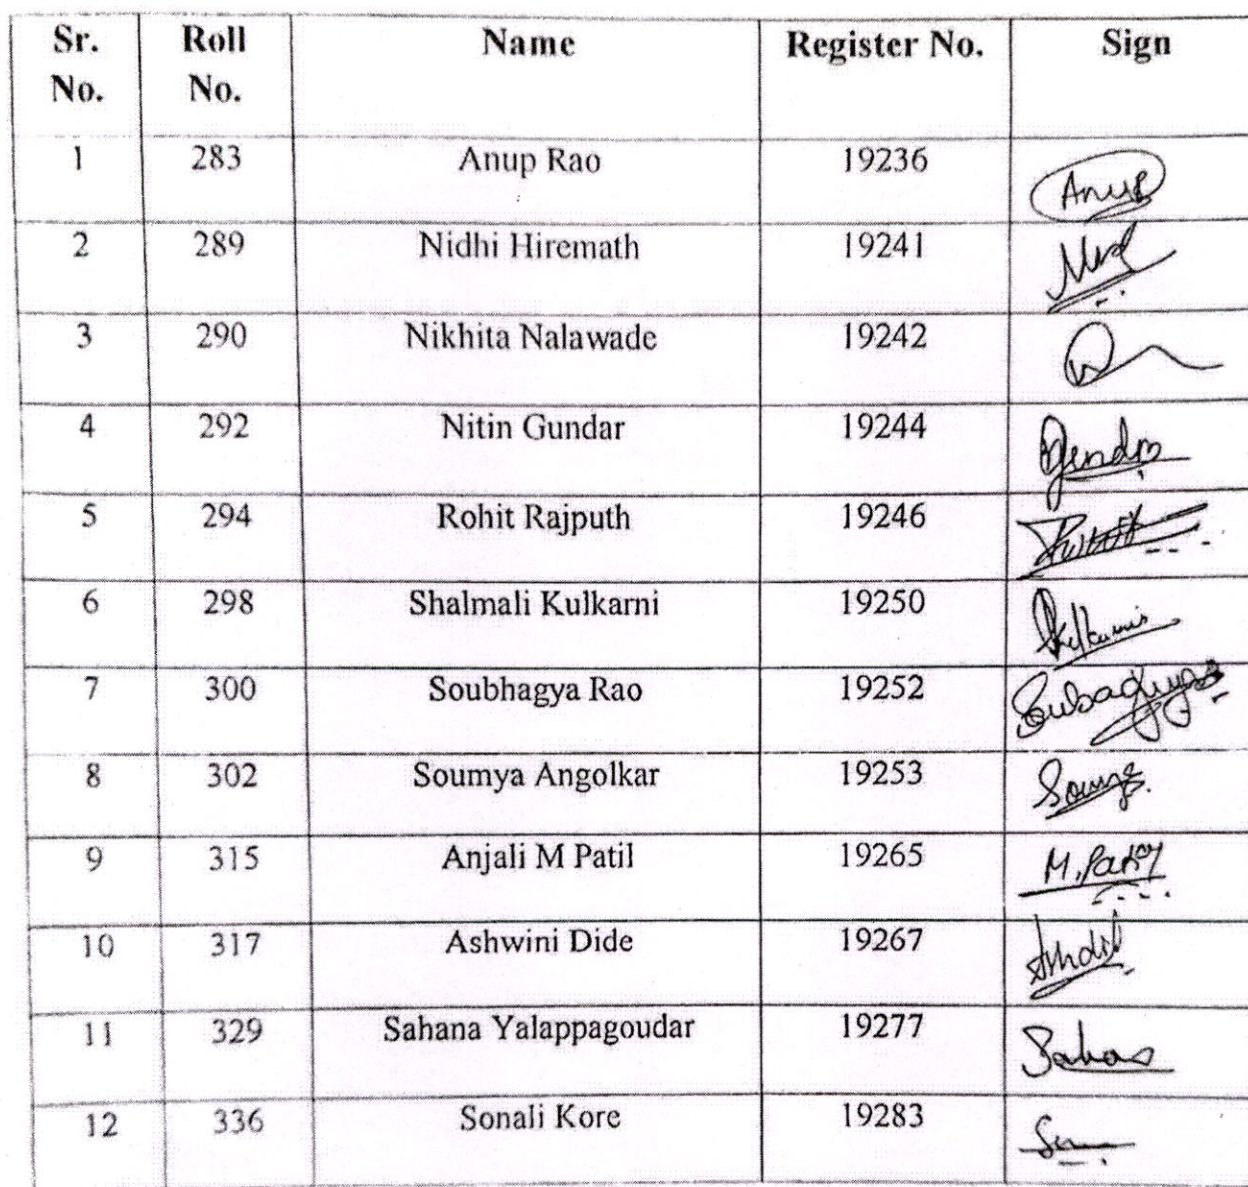 Sr. No. Roll No. Name Register No. Sign
1 283 Anup Rao 19236 Anup
2 289 Nidhi Hiremath 19241
3 290 Nikhita Nalawade 19242
4 292 Nitin Gundar 19244
5 294 Rohit Rajputh 19246
6 298 Shalmali Kulkarni 19250
7 300 Soubhagya Rao 19252
8 302 Soumya Angolkar 19253
9 315 Anjali M Patil 19265
10 317 Ashwini Dide 19267
11 329 Sahana Yalappagoudar 19277
12 336 Sonali Kore 19283